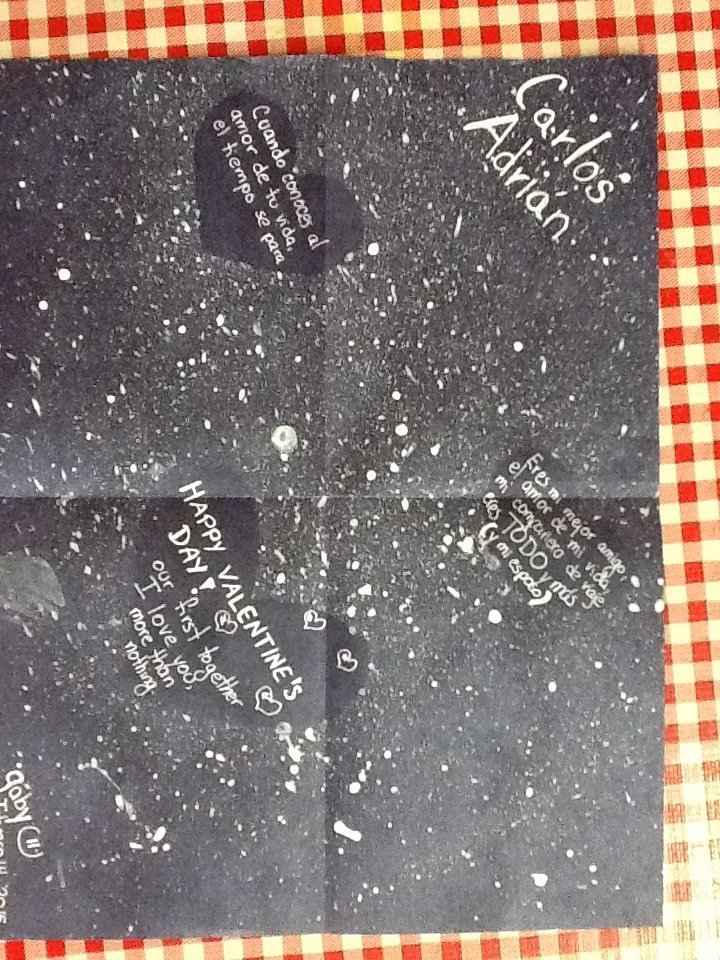 Carlos
Adrián
Cuando conoces al
amor de tu vida,
el tiempo se para
Eres mi mejor amigo,
el amor de mi vida,
mi compañero de viaje
eres TODO y más
(y mi esposo)
HAPPY VALENTINE'S
DAY!
our first together
I love you,
more than
nothing
gaby
2015